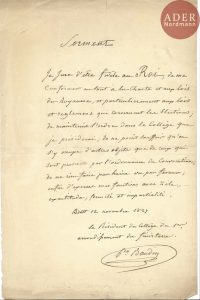 ADER
Nordmann
Serment
Je Jure d'être fidèle au Roi, de me
conformer en tout à la charte et aux lois
du Royaume, et particulièrement aux lois
et règlements qui concernent les Élections,
de maintenir l'ordre dans le Collège que
je présiderai, de ne point souffrir qu'on
s'y occupe d'autres objets que de ceux qui
sont prescrits par l'ordonnance de Convocation,
de ne rien faire par haine ou par faveur,
enfin d'exercer mes fonctions avec zèle,
exactitude, fermeté et impartialité.
Brest 12 novembre 1827
Le Président du Collège du
arrondissement du finistère